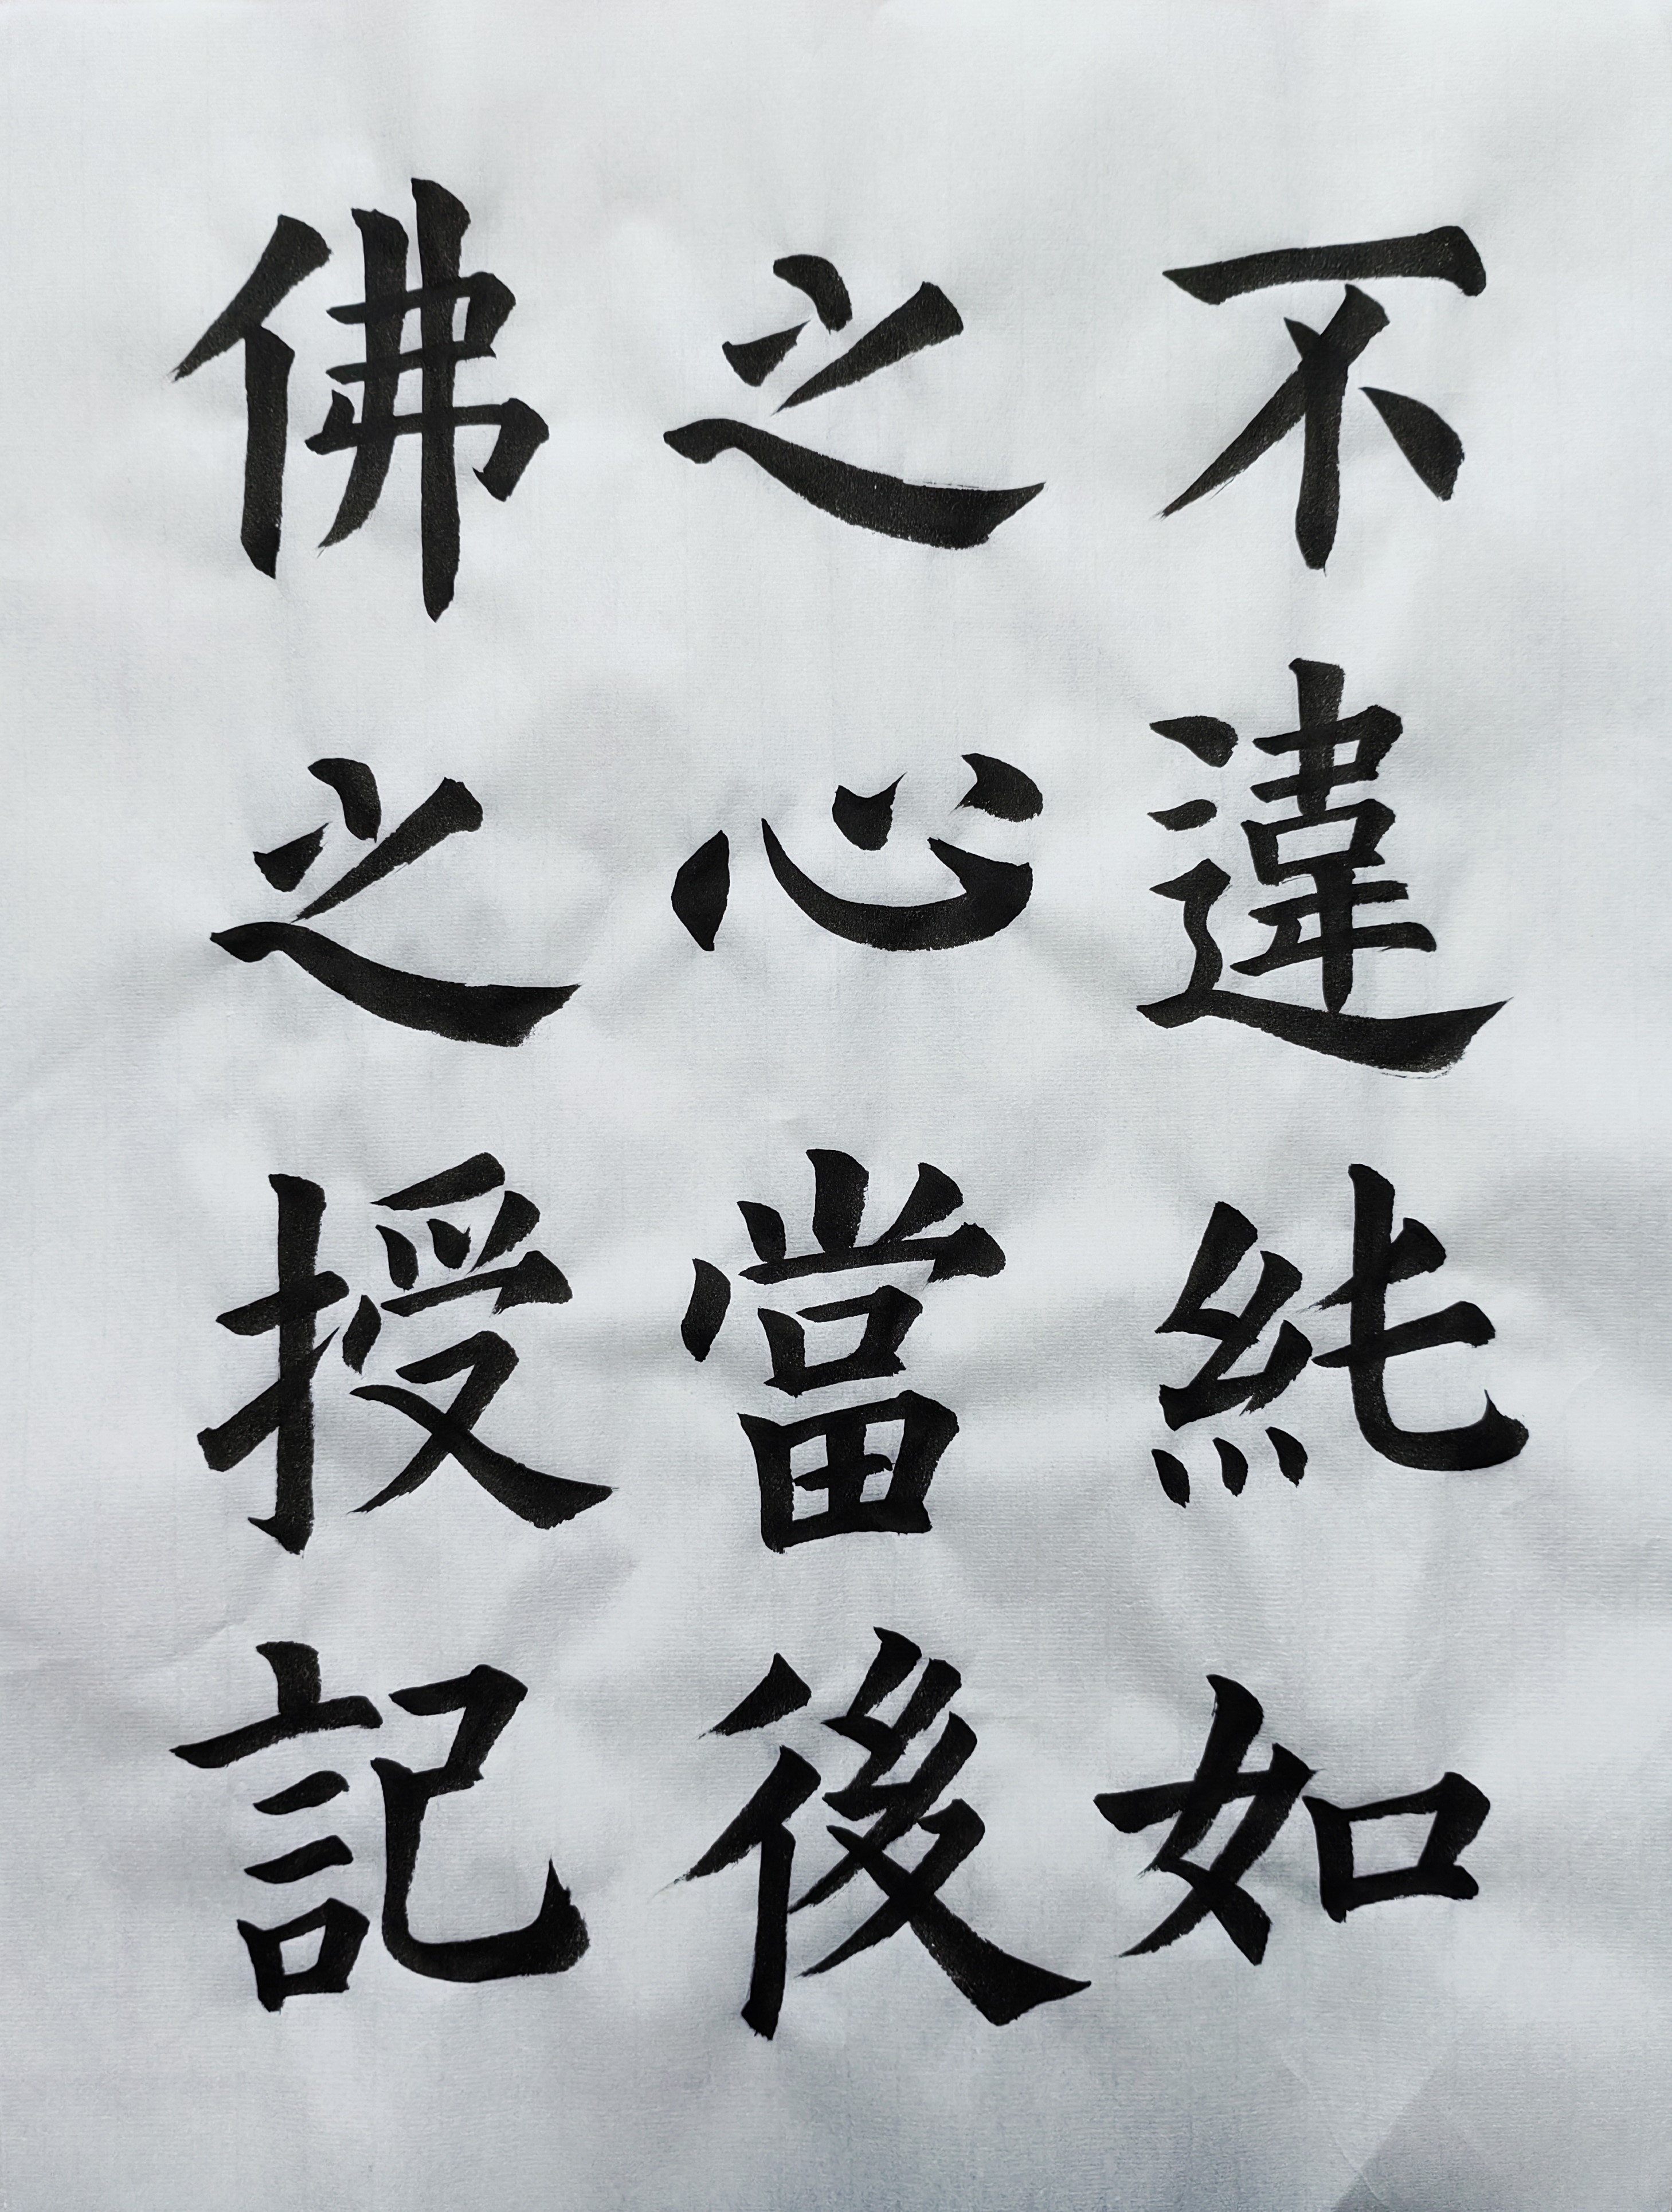 不違純如
之心當後
佛之授記